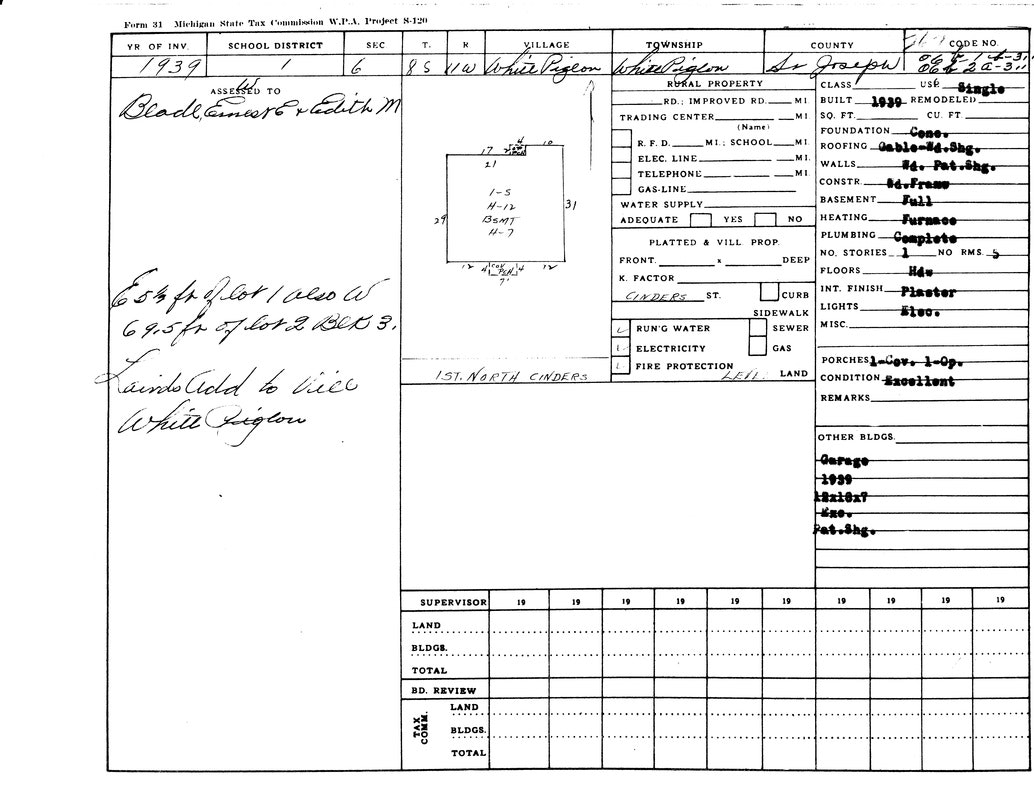 Form 31 Michigan State Tax Commission W.P.A. Project S-120
YR OF INV. SCHOOL DISTRICT SEC T. R VILLAGE TOWNSHIP COUNTY CODE NO.
1939 1 6 8S 11W White Pigeon White Pigeon St Joseph
ASSESSED TO
W
Ernest E & Edith M
E 5½ ft of lot 1 also W
69.5 ft of lot 2 Blk 3.
Add to Vill
White Pigeon
4
17 10
21
1-5
H-12
BSMT
H-7
29 31
12 4 COV PCH 4 12
7'
1ST. NORTH CINDERS
RURAL PROPERTY
RD.; IMPROVED RD. MI.
TRADING CENTER MI.
(Name)
R. F. D. MI.; SCHOOL MI.
ELEC. LINE MI.
TELEPHONE MI.
GAS-LINE
WATER SUPPLY
ADEQUATE YES NO
PLATTED & VILL PROP.
FRONT. x DEEP
K. FACTOR
CINDERS ST. CURB
SIDEWALK
RUN'G WATER SEWER
ELECTRICITY GAS
FIRE PROTECTION
LEVL LAND
CLASS USE Single
BUILT 1939 REMODELED
SQ. FT. CU. FT.
FOUNDATION Conc.
ROOFING Gable-Wd.Shg.
WALLS Wd. Pat.Shg.
CONSTR. Wd.Frame
BASEMENT Full
HEATING Furnace
PLUMBING Complete
NO. STORIES 1 NO RMS. 5
FLOORS Hdw
INT. FINISH Plaster
LIGHTS Elec.
MISC.
PORCHES 1-Cov. 1-Op.
CONDITION Excellent
REMARKS
OTHER BLDGS.
Garage
1939
12x18x7
Exc.
Pat.Shg.
SUPERVISOR 19 19 19 19 19 19 19 19 19 19
LAND
BLDGS.
TOTAL
BD. REVIEW
TAX COMM.
LAND
BLDGS.
TOTAL